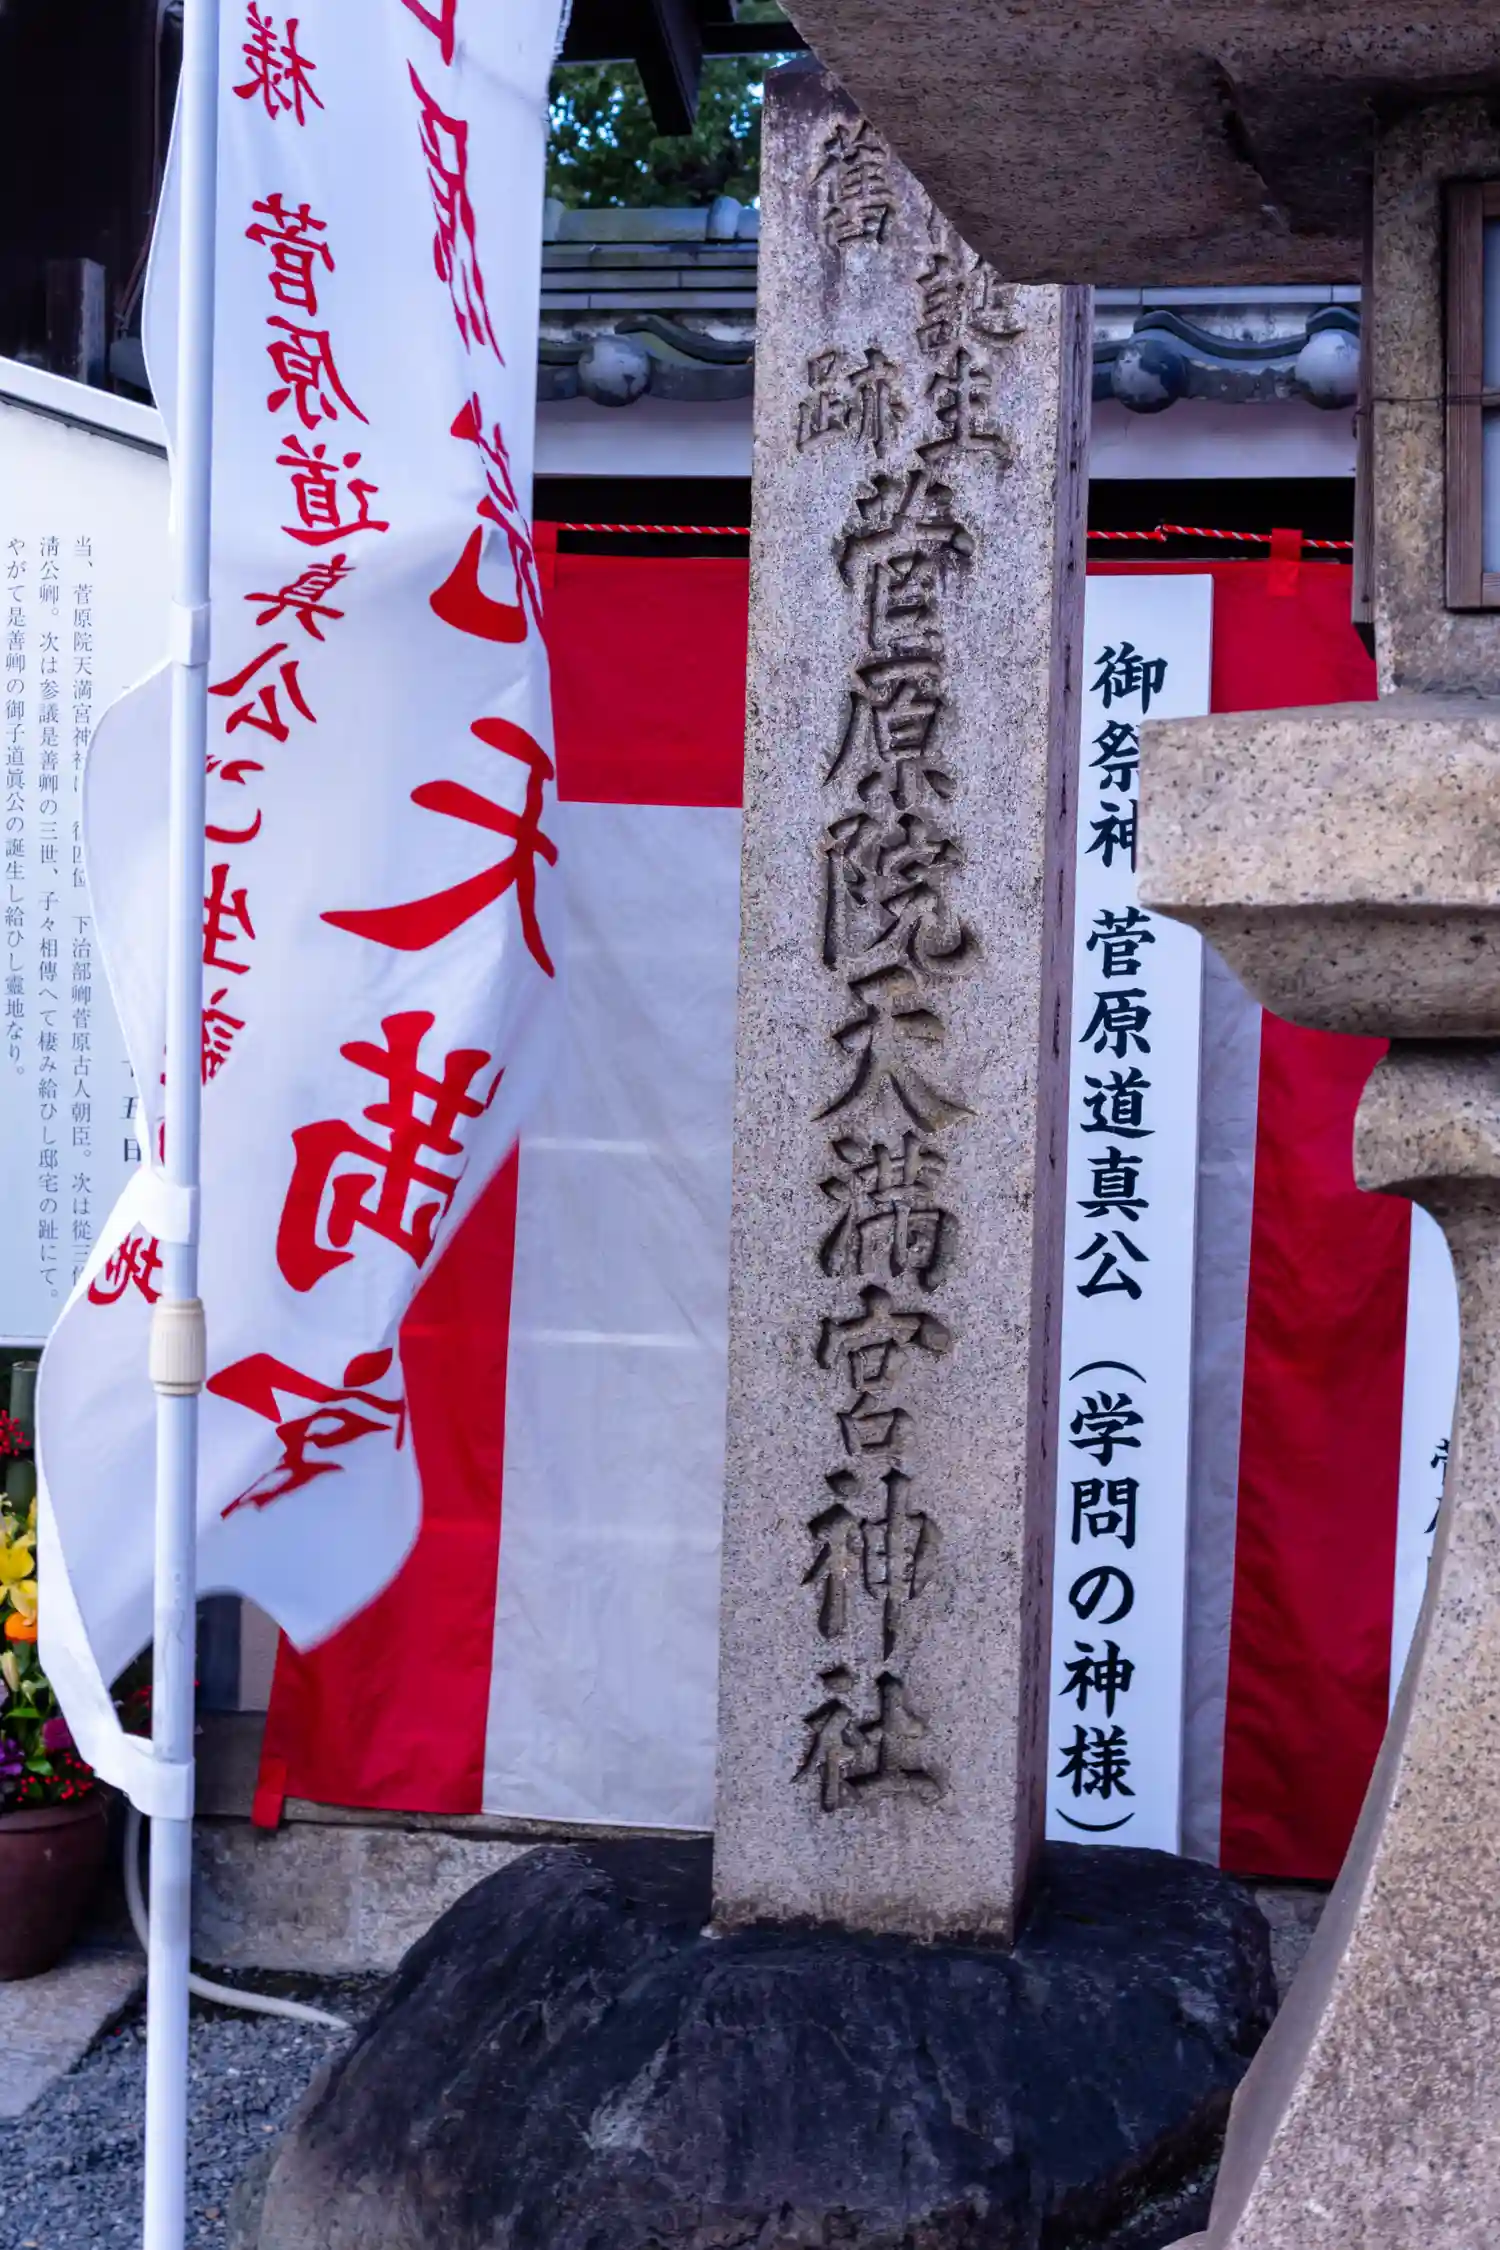 誕生
舊跡
菅原院天満宮神社
御祭神 菅原道真公（学問の神様）
原院天満宮
様 菅原道真公ご生誕の地
当、菅原院天満宮神社は 従四位 下治部卿菅原古人朝臣。次は從三位
清公卿。次は参議是善卿の三世、子々相傳へて棲み給ひし邸宅の趾にて。
やがて是善卿の御子道眞公の誕生し給ひし靈地なり。
五日